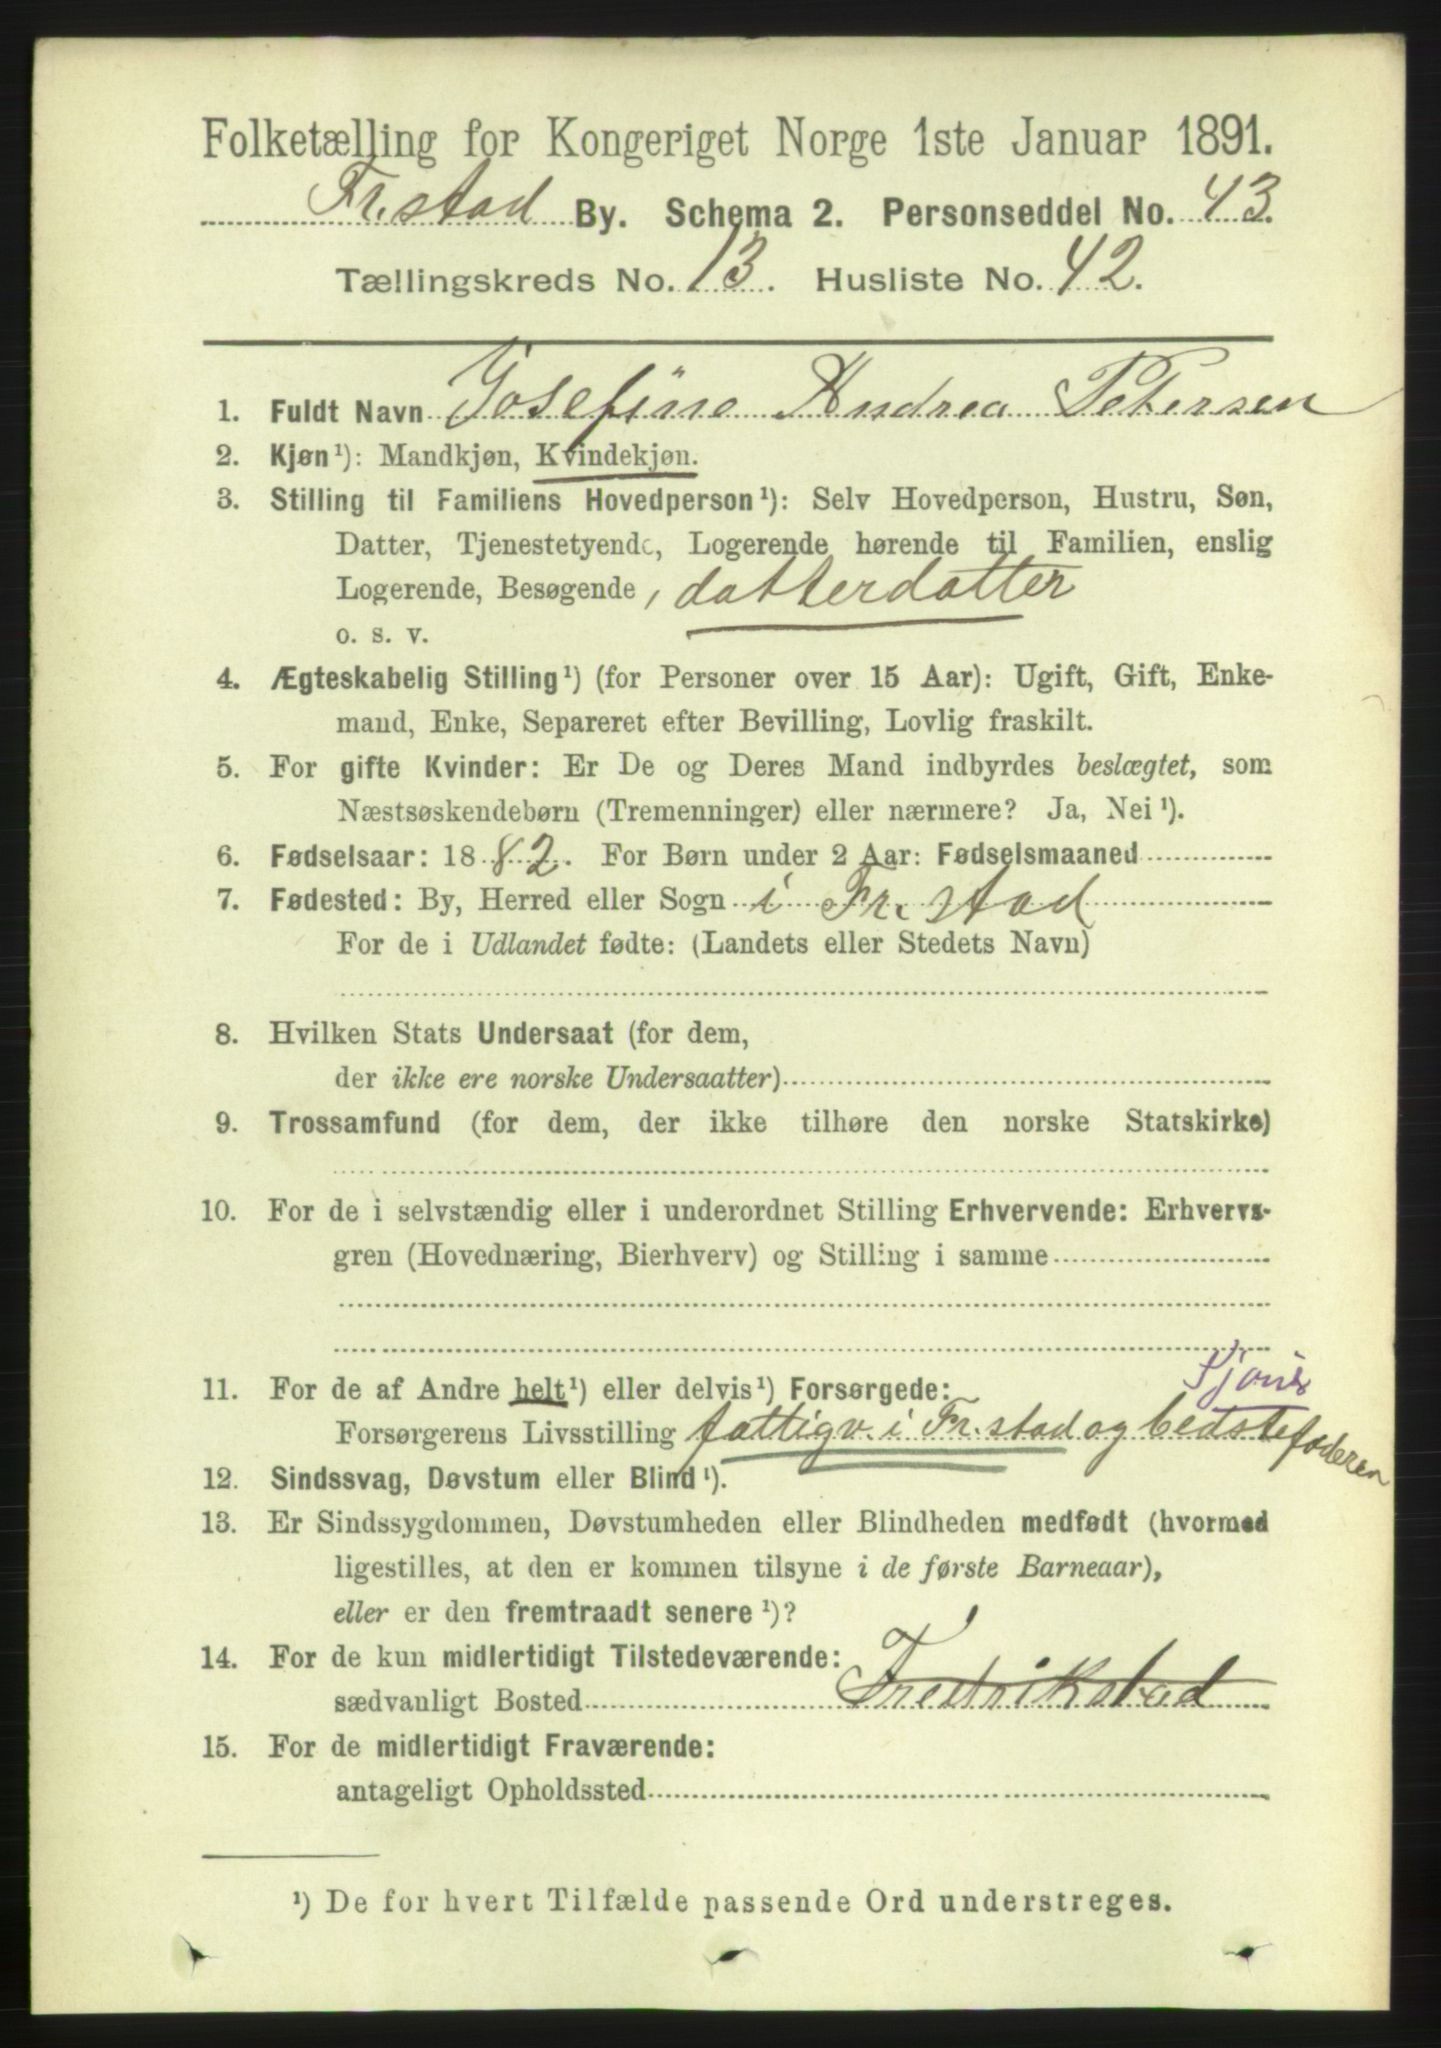 Folketælling for Kongeriget Norge 1ste Januar 1891.
Fr.stad By. Schema 2. Personseddel No. 43.
Tællingskreds No. 13. Husliste No. 42.
1. Fuldt Navn Josefine Andrea Petersen
2. Kjøn¹): Mandkjøn, Kvindekjøn.
3. Stilling til Familiens Hovedperson¹): Selv Hovedperson, Hustru, Søn,
Datter, Tjenestetyende, Logerende hørende til Familien, enslig
Logerende, Besøgende, datterdatter
o. s. v.
4. Ægteskabelig Stilling¹) (for Personer over 15 Aar): Ugift, Gift, Enke-
mand, Enke, Separeret efter Bevilling, Lovlig fraskilt.
5. For gifte Kvinder: Er De og Deres Mand indbyrdes beslægtet, som
Næstsøskendebørn (Tremenninger) eller nærmere? Ja, Nei¹).
6. Fødselsaar: 1882. For Børn under 2 Aar: Fødselsmaaned
7. Fødested: By, Herred eller Sogn i Fr.stad
For de i Udlandet fødte: (Landets eller Stedets Navn)
8. Hvilken Stats Undersaat (for dem,
der ikke ere norske Undersaatter)
9. Trossamfund (for dem, der ikke tilhøre den norske Statskirke)
10. For de i selvstændig eller i underordnet Stilling Erhvervende: Erhvervs-
gren (Hovednæring, Bierhverv) og Stilling i samme
11. For de af Andre helt¹) eller delvis¹) Forsørgede:
Forsørgerens Livsstilling fattigv. i Fr.stad og bedstefaderen
12. Sindssvag, Døvstum eller Blind¹).
13. Er Sindssygdommen, Døvstumheden eller Blindheden medfødt (hvormed
ligestilles, at den er kommen tilsyne i de første Barneaar),
eller er den fremtraadt senere¹)?
14. For de kun midlertidigt Tilstedeværende:
sædvanligt Bosted Fredrikstad
15. For de midlertidigt Fraværende:
antageligt Opholdssted
¹) De for hvert Tilfælde passende Ord understreges.